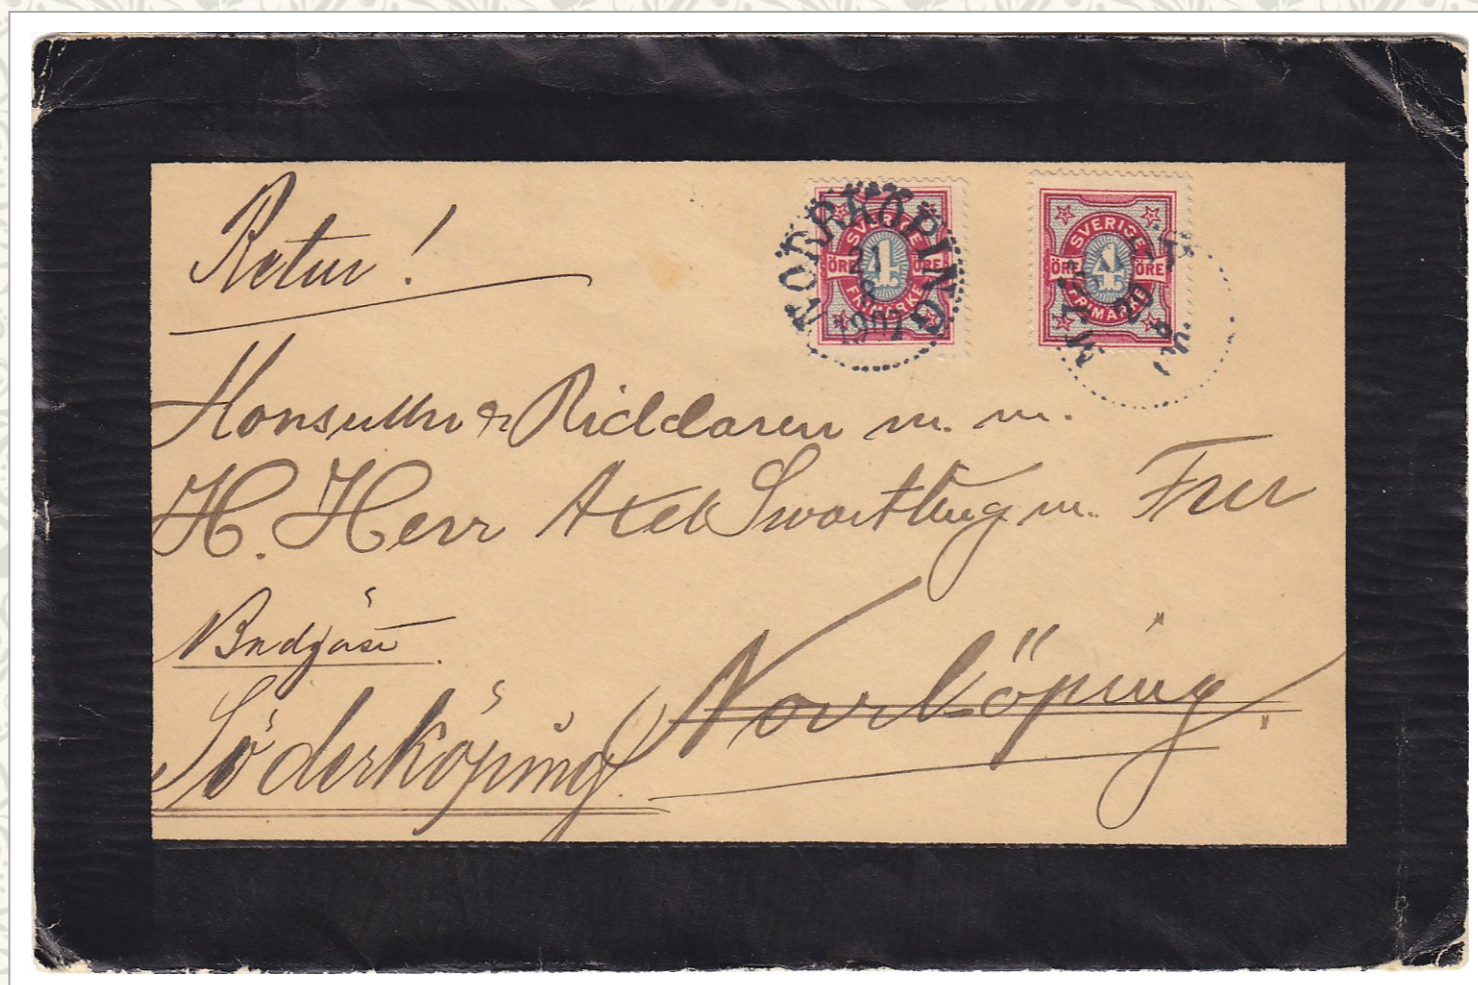 Retur!
NORRKÖPING
21
1907
SVERIGE
ÖRE 4 ÖRE
FRIMÄRKE
SVERIGE
ÖRE 4 ÖRE
FRIMÄRKE
20
Konsulln & Riddaren m. m.
H. Herr Axel Swartling m. Fru
Söderköping.
Norrköping.